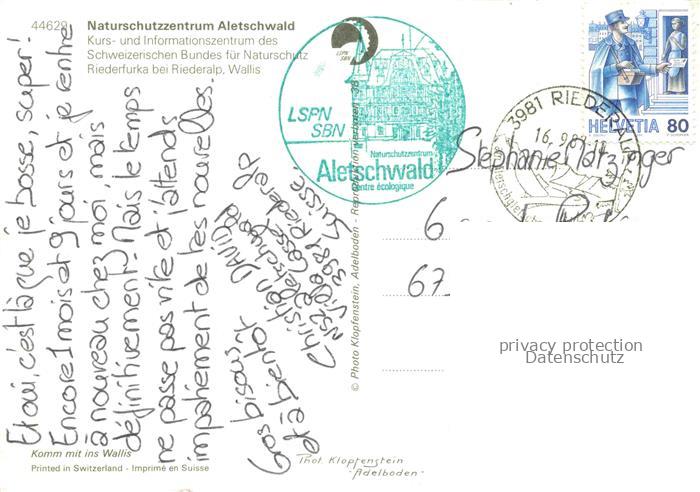 44629 Naturschutzzentrum Aletschwald
Kurs- und Informationszentrum des
Schweizerischen Bundes für Naturschutz
Riederfurka bei Riederalp, Wallis
LSPN
SBN
LSPN
SBN
Naturschutzzentrum
Aletschwald
Centre écologique
3981 RIEDERALP
16.9.8
HELVETIA 80
Et oui, c'est là que je bosse, super!
Encore 1 mois et 9 jours et je rentre
à nouveau chez moi, mais
définitivement. Mais le temps
ne passe pas vite et j'attends
impatiement de tes nouvelles.
Gros bisous
et à bientôt
Christian DAVID
Villa Cassel
3981 Riederalp
Suisse
Stephanie
6
67
© Photo Klopfenstein, Adelboden - Reproduction verboten - 38
privacy protection
Datenschutz
Komm mit ins Wallis
Printed in Switzerland - Imprimé en Suisse
Phot. Klopfenstein
- Adelboden -